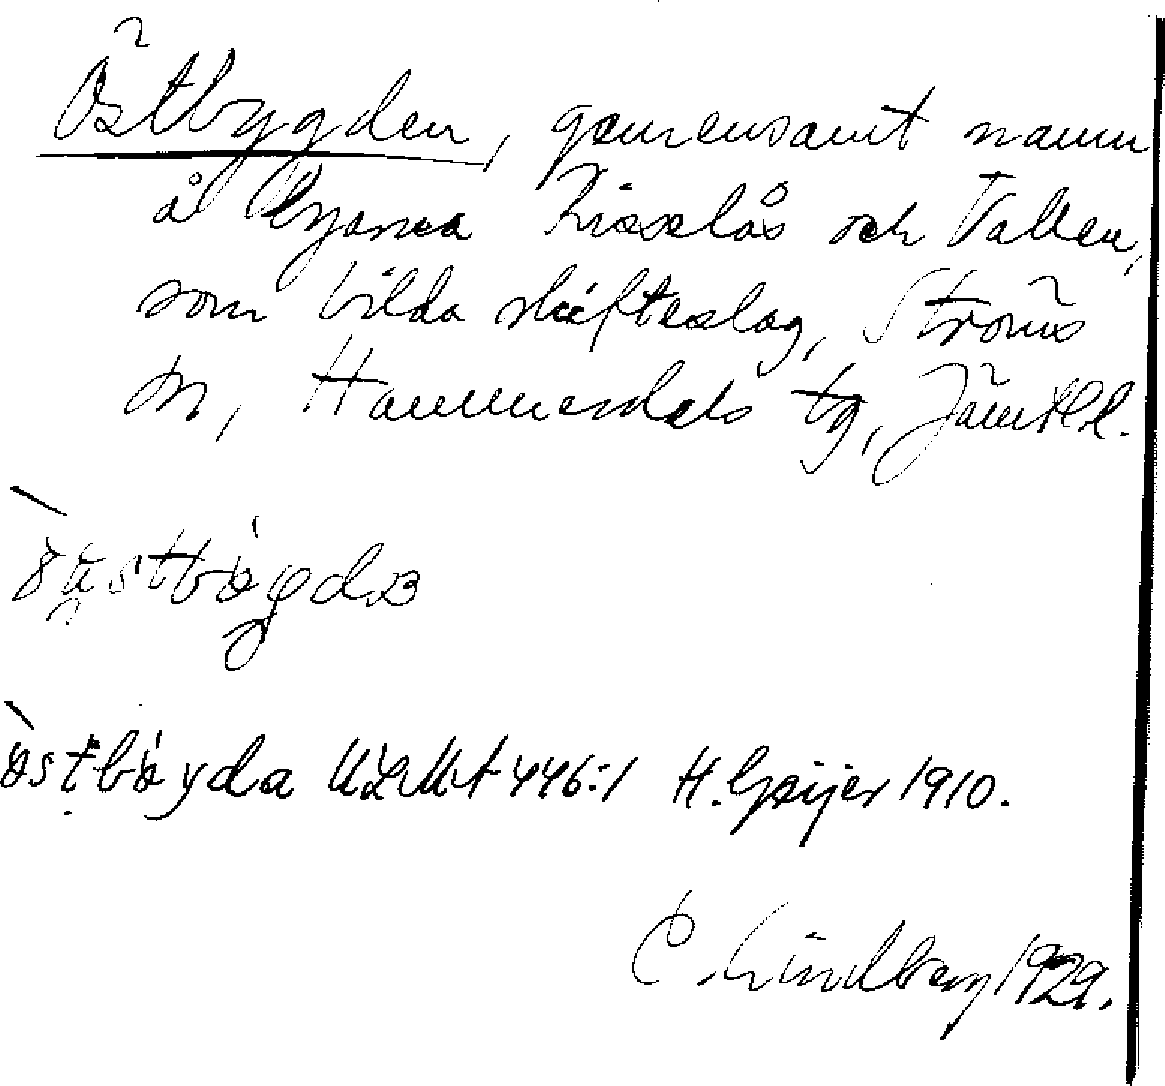 Östbygden, gemensamt namn
å byarna Kisselås och Vallen,
som bilda skifteslag, Ströms
sn, Hammerdals tg, Jämtl l.
östbygda ULMA 446:1 H. Geijer 1910.
C. Lindberg 1929.